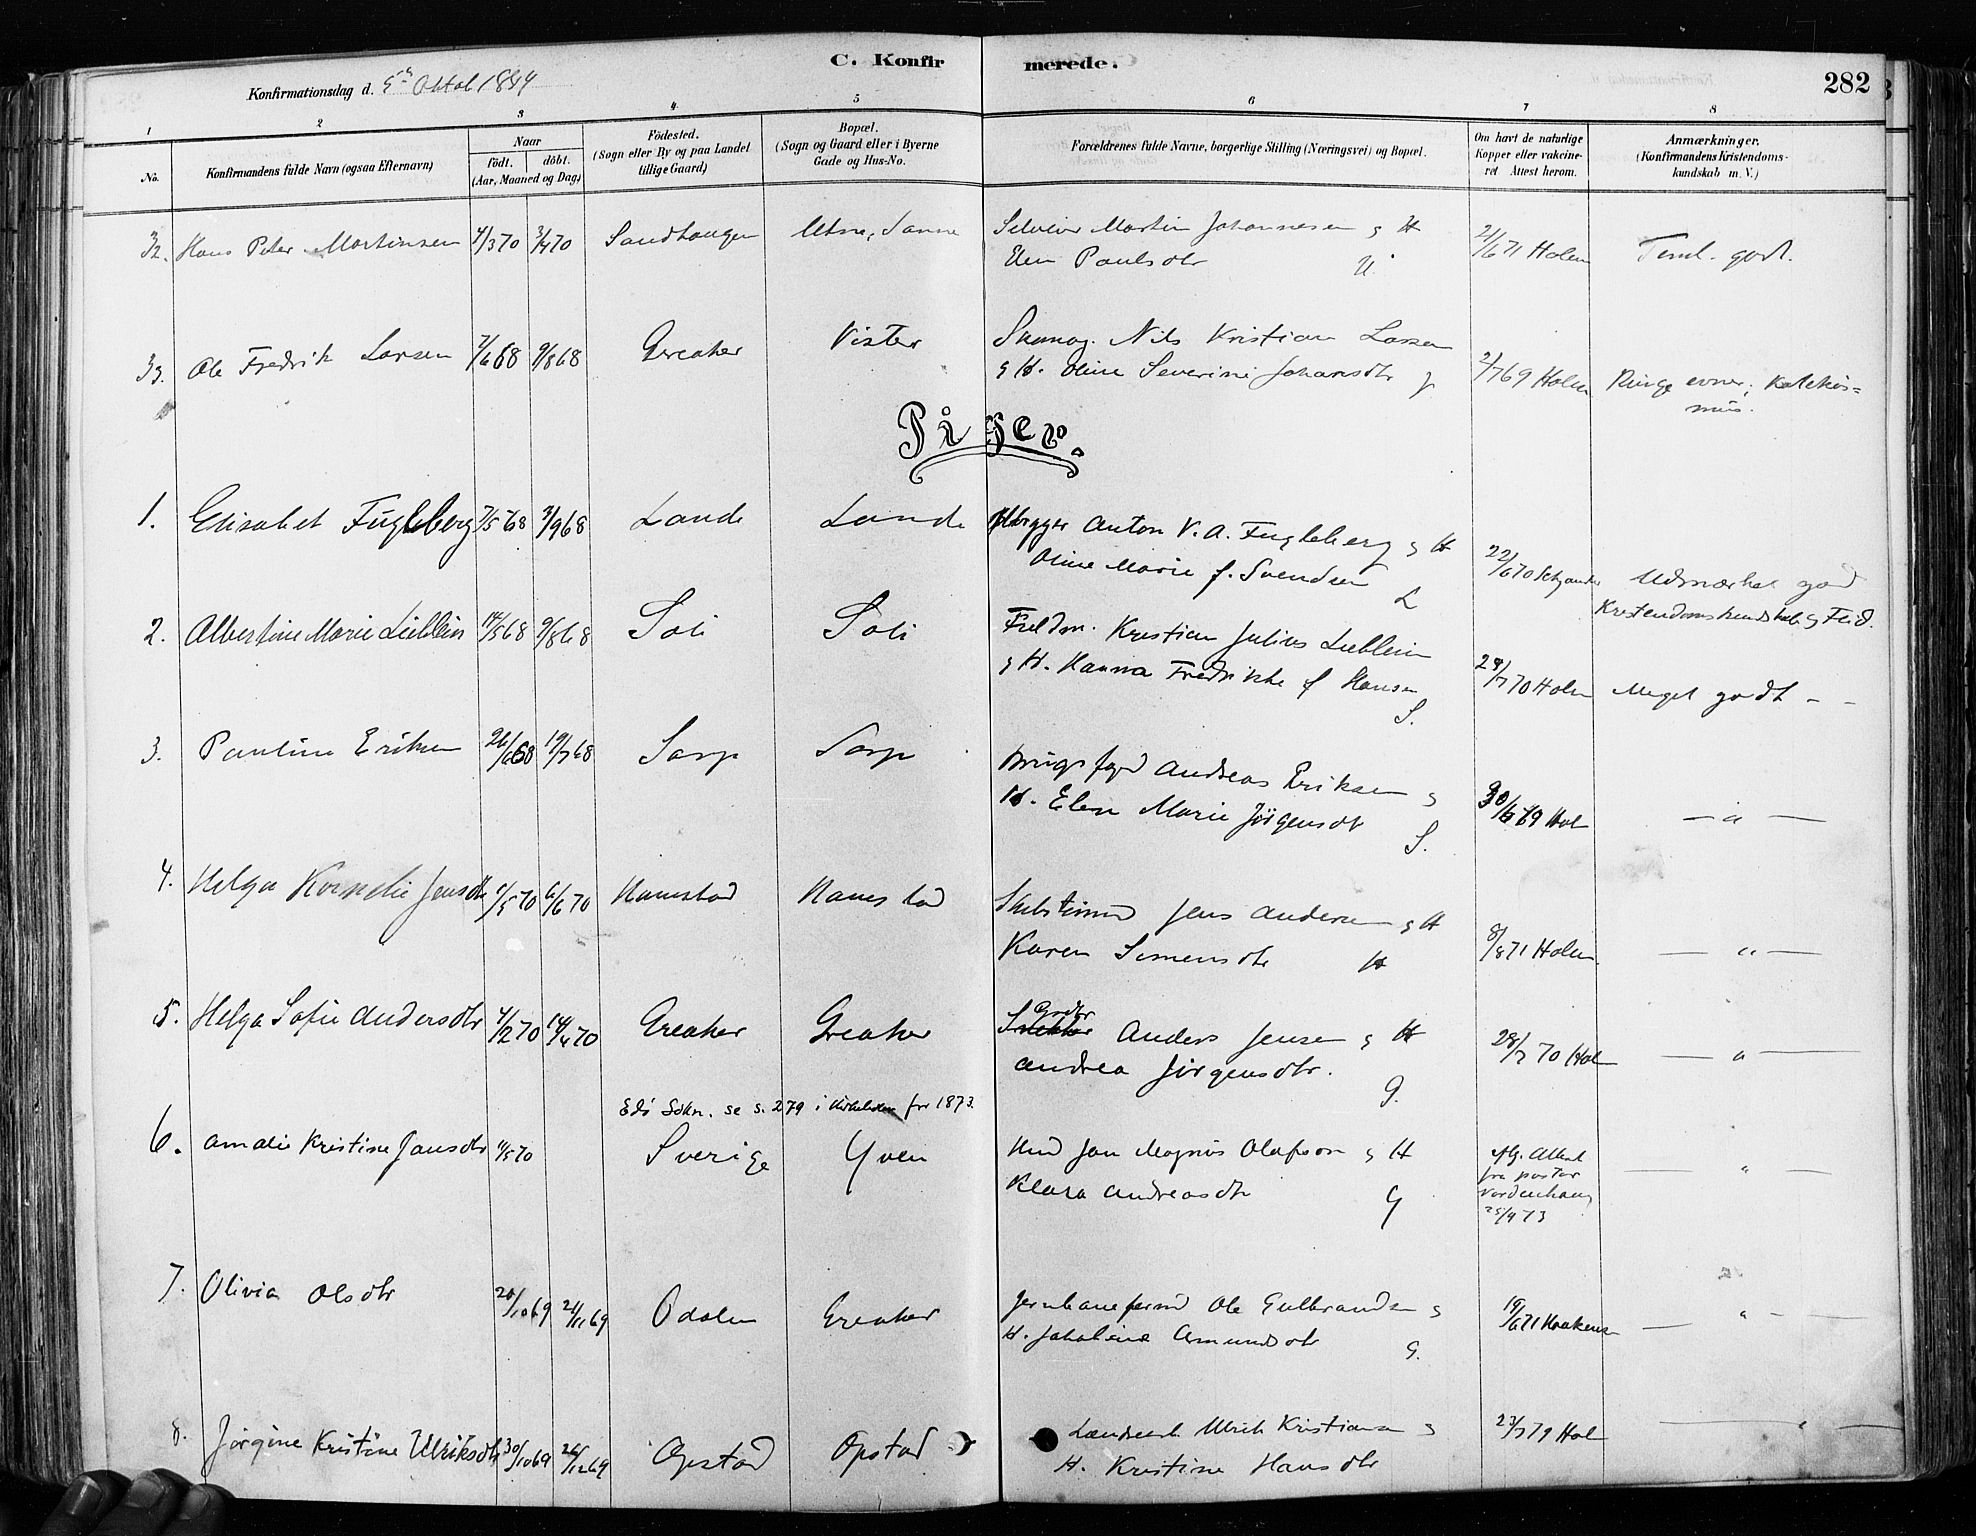 C. Konfirmerede.
282
Konfirmationsdag d. 5te Oktob 1884
1 2 3 4 5 6 7 8
No. Konfirmandens fulde Navn (ogsaa Efternavn) Naar födt. döbt. (Aar, Maaned og Dag) Födested. (Sogn eller By og paa Landet tillige Gaard) Bopæl. (Sogn og Gaard eller i Byerne Gade og Hus-No. Forældrenes fulde Navne, borgerlige Stilling (Næringsvei) og Bopæl. Om havt de naturlige Kopper eller vakcineret Attest herom. Anmærkninger. (Konfirmandens Kristendomskundskab m. V.)
32. Hans Peter Martinsen 4/3 70 3/4 70 Sandhaugen Utne, Sanne Martin Johannesen og H
Elen Paulsdtr U. 21/6 71 Holm Teml. godt.
33. Ole Fredrik Larsen 7/6 68 9/8 68 Greaker Vister Nils Kristian Larsen
og H. Oline Severine Johansdtr 2/7 69 Holm Ringe evner; Katekis=
mus.
Piger.
1. Elisabet Fugleberg 7/5 68 3/9 68 Lande Lande Anton V. A. Fugleberg og H
Oline Marie f. Svendsen L 22/6 70 Udmærket god
Kristendomskundskab og Flid.
2. Albertine Marie Lieblein 14/5 68 9/8 68 Soli Soli Kristian Julius Lieblein
og H. Hanna Fredrikke f Hansen S. 28/7 70 Holm Meget godt - -
3. Pauline Eriksen 26/6 68 19/7 68 Sarp Sarp Andreas Eriksen og
H. Elen Marie Jörgensdtr S. 69 Hol — " —
4. Helga Kornelie Jensdtr 1/5 70 6/6 70 Hamstad Hamstad Jens Andersen og H
Karen Simensdtr H 8/8 71 Holm — " —
5. Helga Sofie Andersdtr 4/2 70 14/4 70 Greaker Greaker Anders Jensen og H
Andrea Jörgensdtr. G. 28/7 70 Hol — " —
Edö Sokn. se s. 279 i Kirkeboken for 1873.
6. Amalie Kristine Jansdtr 11/5 70 Sverige Yven Jan Magnus Olafsson og H
Klara Andreasdtr Y Attest
fra pastor
25/4 73 — " —
7. Olivia Olsdtr 20/10 69 21/11 69 Odalen Greaker Ole Gulbrandsen og
H. Amundsdtr G. 19/6 71 — " —
8. Jörgine Kristine Ulriksdtr 30/10 69 26/12 69 Opstad Opstad Ulrik Kristiansen og
H. Kristine Hansdtr 23/7 79 Hol — " —